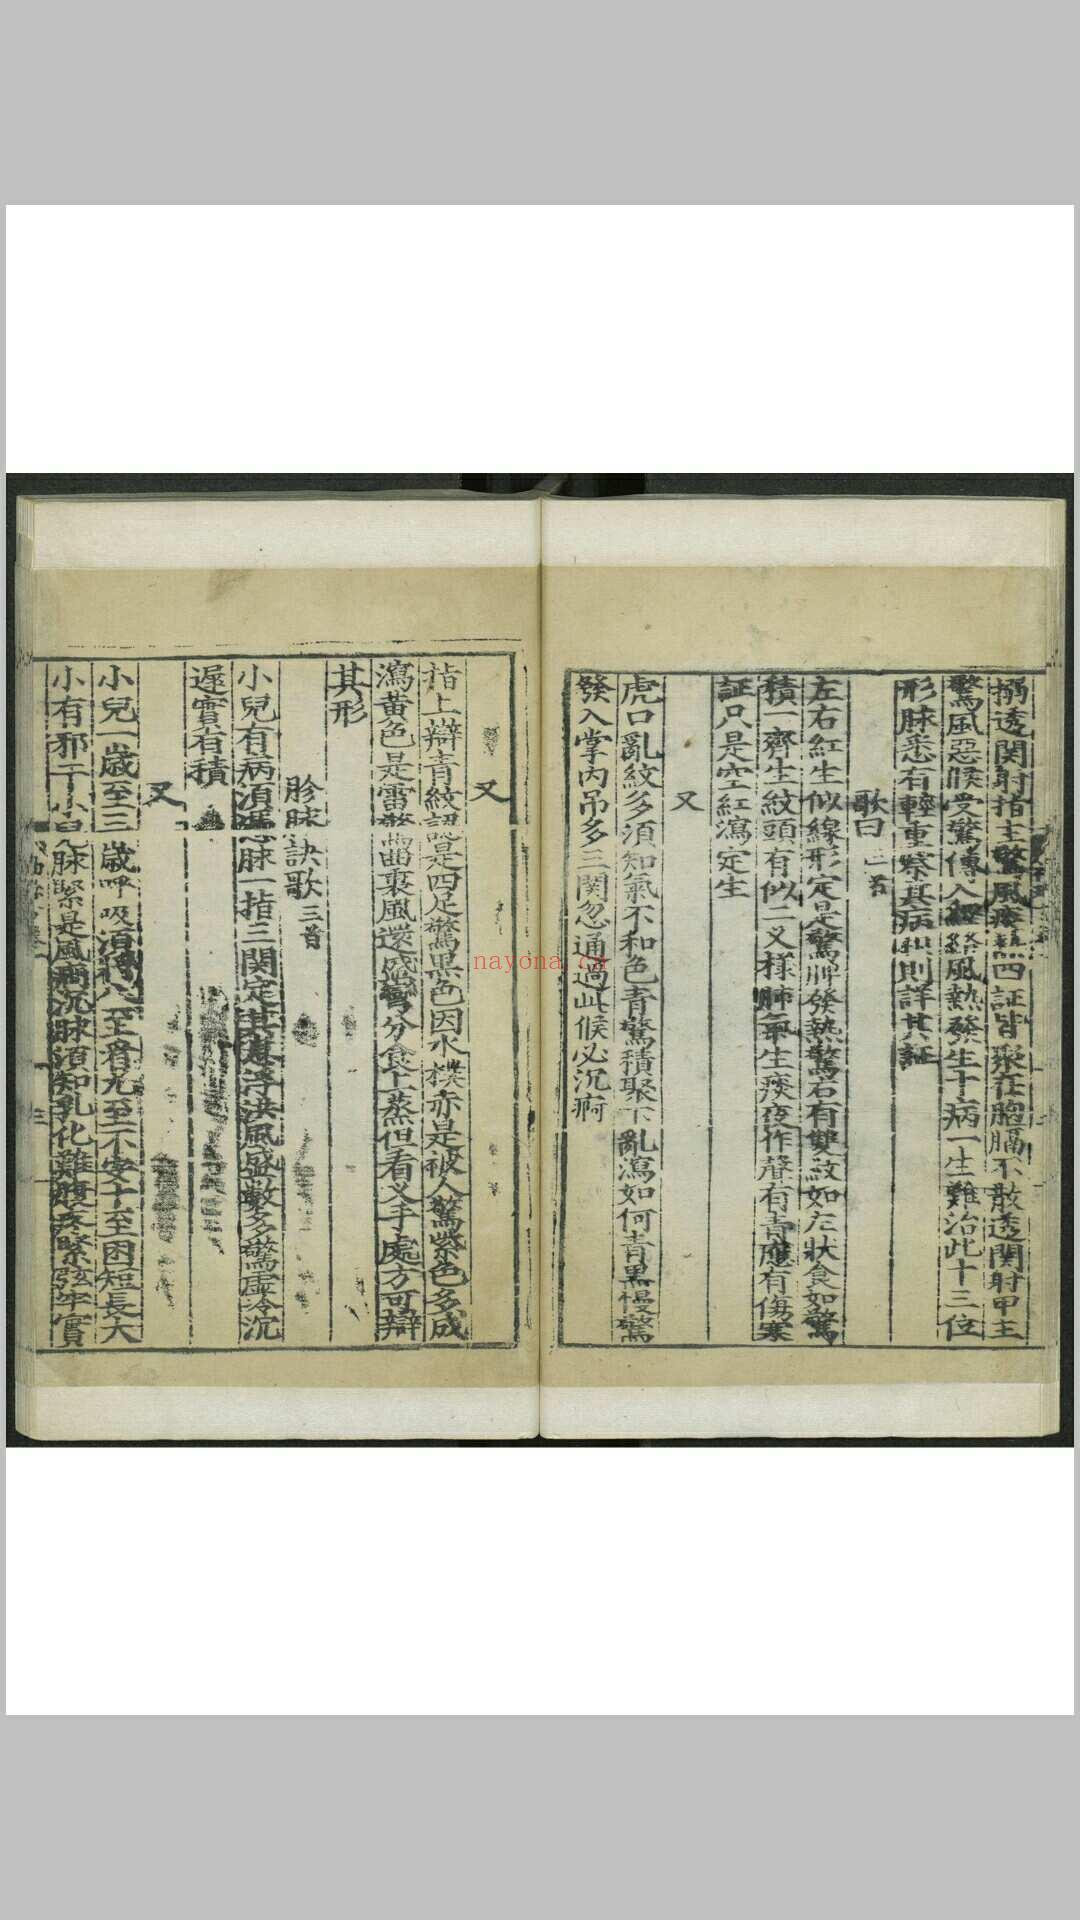 搦透関射指主驚風痰熱四証皆聚在胸膈不散透関射甲主
驚風惡候受驚傳入經絡風熱發生十病一生難治此十三位
形脉悉有輕重察其病根則詳其証
歌曰
左右紅生似線形定是驚脾發熱驚右有雙紋如左狀食如驚
積一齊生紋頭有似二叉樣肺氣生痰夜作聲有青應有傷寒
証只是空紅瀉定生
又
虎口亂紋多須知氣不和色青驚積聚下亂瀉如何青黑慢驚
發入掌內吊多三関忽通過此候必沉痾
又
指上辯青紋認是四足驚黑色因水樸亦是被人驚紫色多成
瀉黃色是雷驚曲裏風還盛彎分食上蒸但看叉手處方可辯
其形
胗脉訣歌三首
小兒有病須憑脉一指三関定其息浮洪風盛數多驚虛冷沉
遲實有積
又
小兒一歲至三歲呼吸須將八至看九至不安十至困短長大
小有邪干小兒脉緊是風癇沉脉須知乳化難腹疼緊弦牢實
nayona.cn